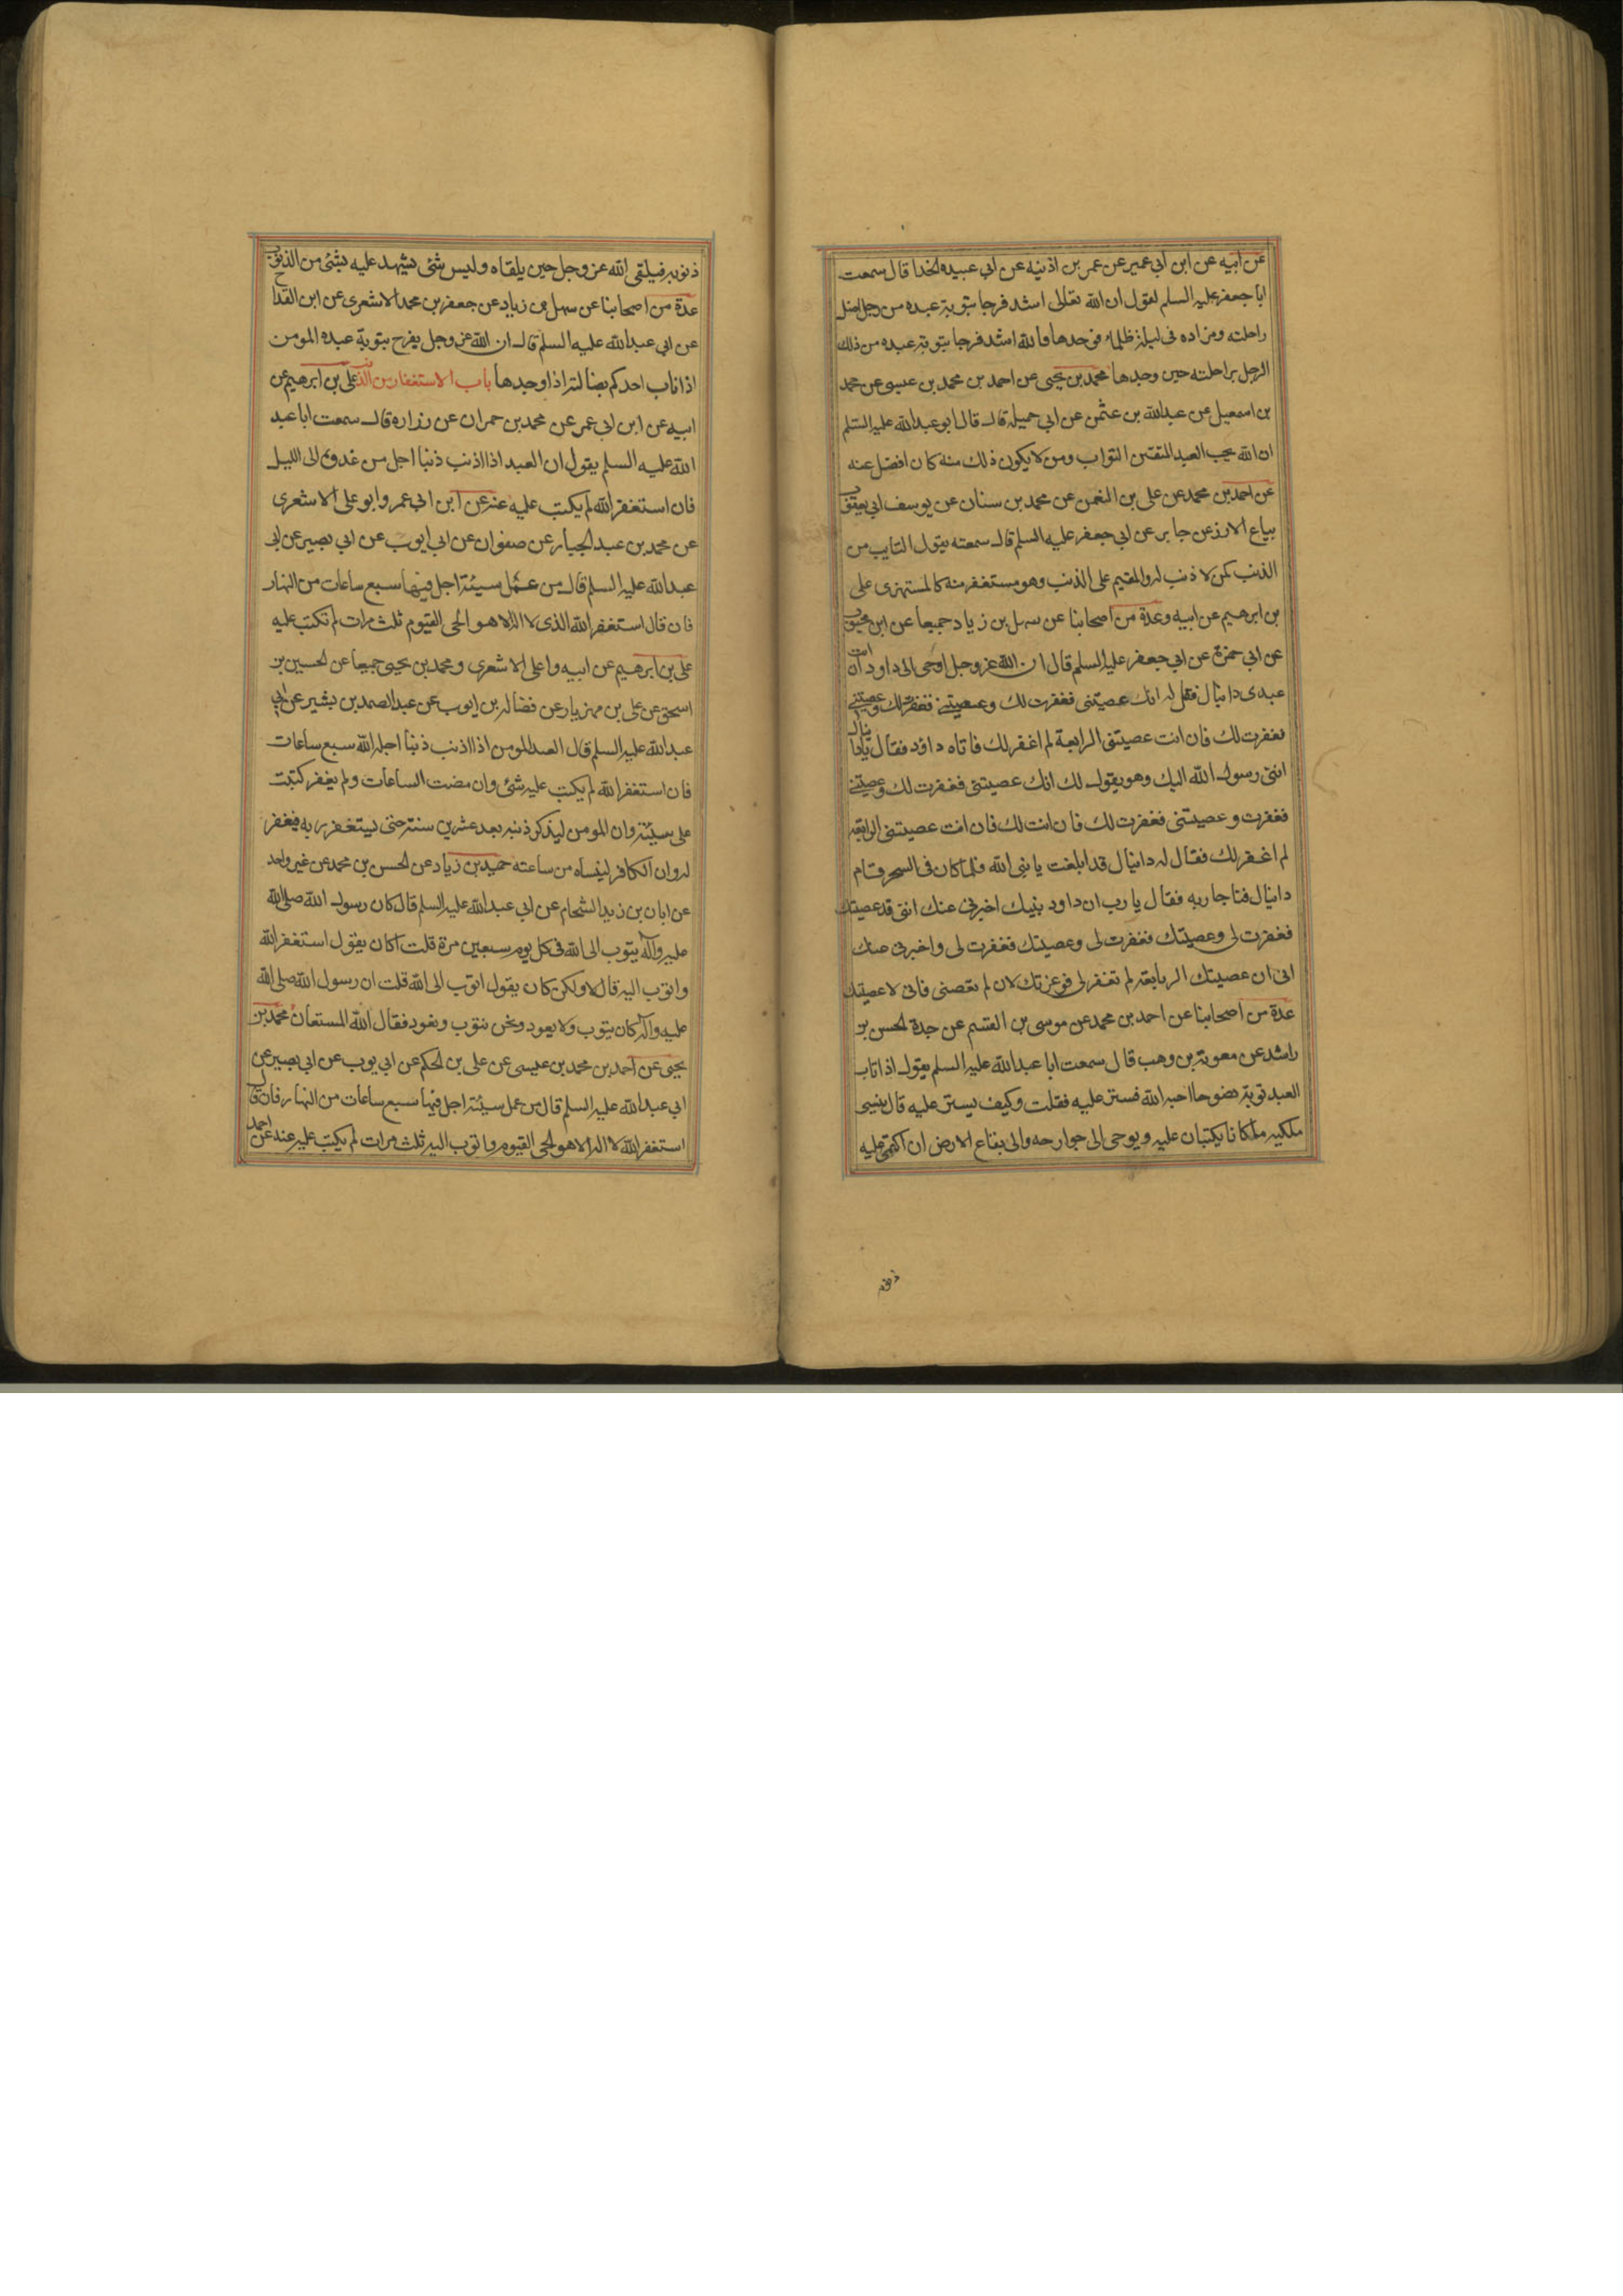 عن ابيه عن ابن ابي عمير عن عمر بن اذينه عن ابي عبيده الحذا قال سمعت
ابا جعفر عليه السلم يقول ان الله تعالى اشد فرحا بتوبة عبده من رجل اضل
راحلته ومزاده في ليلة ظلماء فوجدها فالله اشد فرحا بتوبة عبده من ذلك
الرجل براحلته حين وجدها محمد بن يحيى عن احمد بن محمد بن عيسى عن محمد
بن اسمعيل عن عبدالله بن عثمن عن ابي جميلة قال قال ابو عبدالله عليه السلم
ان الله يحب العبد المفتن التواب ومن لا يكون ذلك منه كان افضل عنه
عن احمد بن محمد عن على بن النعمن عن محمد بن سنان عن يوسف ابي يعقوب
بياع الارز عن جابر عن ابي جعفر عليه السلم قال سمعته يقول التايب من
الذنب كمن لا ذنب له والمقيم على الذنب وهو مستغفر منه كالمستهزى على
بن ابرهيم عن ابيه وعدة من اصحابنا عن سهل بن زياد جميعا عن ابن محبوب
عن ابي حمزة عن ابي جعفر عليه السلم قال ان الله عز وجل اوحى الى داود ان ائت
عبدى دانيال فقل له انك عصيتنى فغفرت لك وعصيتنى فغفرت لك وعصيتنى
فغفرت لك فان انت عصيتنى الرابعة لم اغفر لك فاتاه داؤد فقال يا دانيال
اننى رسول الله اليك وهو يقول لك انك عصيتنى فغفرت لك وعصيتنى
فغفرت وعصيتنى فغفرت لك فان انت لك فان انت عصيتنى الرابعة
لم اغفر لك فقال له دانيال قد ابلغت يا نبى الله فلما كان في السحر قام
دانيال فناجا ربه فقال يا رب ان داود نبيك اخبرنى عنك اننى قد عصيتك
فغفرت لى وعصيتك فغفرت لى وعصيتك فغفرت لى واخبرنى عنك
انى ان عصيتك الرابعة لم تغفر لى فوعزتك لان لم تعصنى فانى لاعصيتك
عدة من اصحابنا عن احمد بن محمد عن موسى بن القسم عن جدة الحسن بن
راشد عن معوية بن وهب قال سمعت ابا عبدالله عليه السلم يقول اذا تاب
العبد توبة نضوحا احبه الله فستر عليه فقلت وكيف يستر عليه قال ينسى
ملكيه ما كانا يكتبان عليه ويوحى الى جوارحه والى بقاع الارض ان اكتمى عليه
ذنوبه
ذنوبه فيلقى الله عز وجل حين يلقاه وليس شئ يشهد عليه بشئ من الذنوب
عدة من اصحابنا عن سهل بن زياد عن جعفر بن محمد الاشعرى عن ابن القداح
عن ابي عبدالله عليه السلم قال ان الله عز وجل يفرح بتوبة عبده المومن
اذا تاب احدكم بضالته اذا وجدها باب الاستغفار من الذنب على بن ابرهيم عن
ابيه عن ابن ابي عمر عن محمد بن حمران عن زراره قال سمعت ابا عبد
الله عليه السلم يقول ان العبد اذا اذنب ذنبا اجل من غدوة الى الليل
فان استغفر الله لم يكتب عليه عنه عن ابن ابي عمر وابو على الاشعرى
عن محمد بن عبد الجبار عن صفوان عن ابي ايوب عن ابي بصير عن ابي
عبدالله عليه السلم قال من عمل سيئة اجل فيها سبع ساعات من النهار
فان قال استغفر الله الذى لا اله الا هو الحى القيوم ثلث مرات لم تكتب عليه
على بن ابرهيم عن ابيه واعلى الاشعرى ومحمد بن يحيى جميعا عن الحسين بن
اسحق عن على بن مهزيار عن فضاله بن ايوب عن عبد الصمد بن بشير عن ابي
عبدالله عليه السلم قال العبد المومن اذا اذنب ذنبا اجله الله سبع ساعات
فان استغفر الله لم يكتب عليه شئ وان مضت الساعات ولم يغفر كتبت
على سيئة وان المومن ليذكر ذنبه بعد عشرين سنة حتى يستغفر ربه فيغفر
له وان الكافر لينساه من ساعته حميد بن زياد عن الحسن بن محمد عن غير واحد
عن ابان بن زيد الشحام عن ابي عبدالله عليه السلم قال كان رسول الله صلى الله
عليه وآله يتوب الى الله في كل يوم سبعين مرة قلت اكان يقول استغفر الله
واتوب اليه قال لا ولكن كان يقول اتوب الى الله قلت ان رسول الله صلى الله
عليه وآله كان يتوب ولا يعود ونحن نتوب ونعود فقال الله المستعان محمد بن
يحيى عن احمد بن محمد بن عيسى عن على بن الحكم عن ابي يوب عن ابي بصير عن
ابي عبدالله عليه السلم قال من عمل سيئة اجل فيها سبع ساعات من النهار فان قال
استغفر الله لا اله الا هو الحى القيوم واتوب اليه ثلث مرات لم يكتب عليه عنه عن احمد